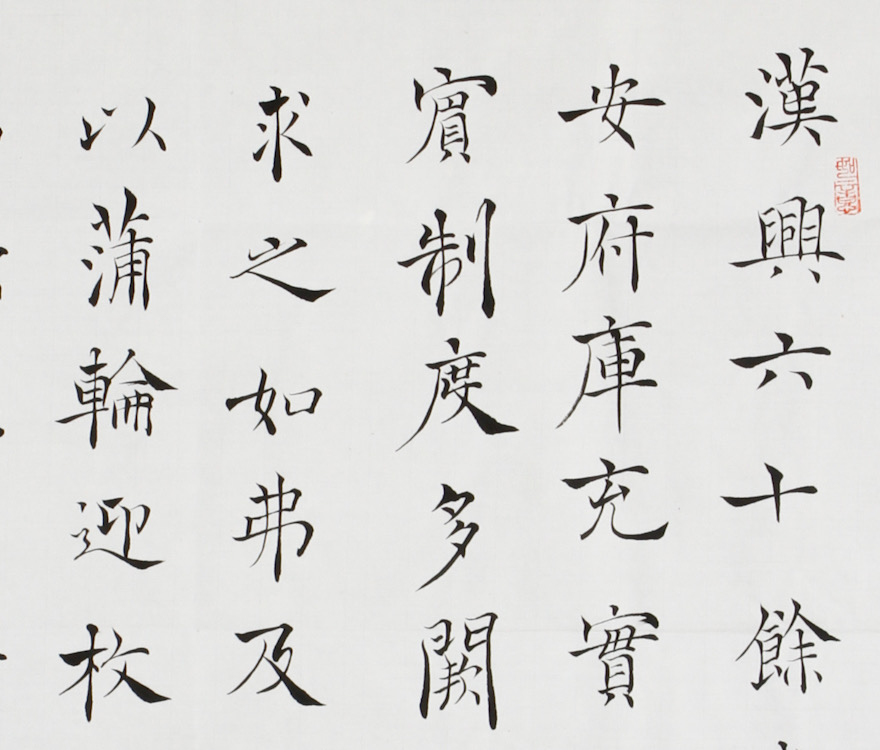 漢興六十餘
安府庫充實
賔制度多闕
求之如弗及
以蒲輪迎枚